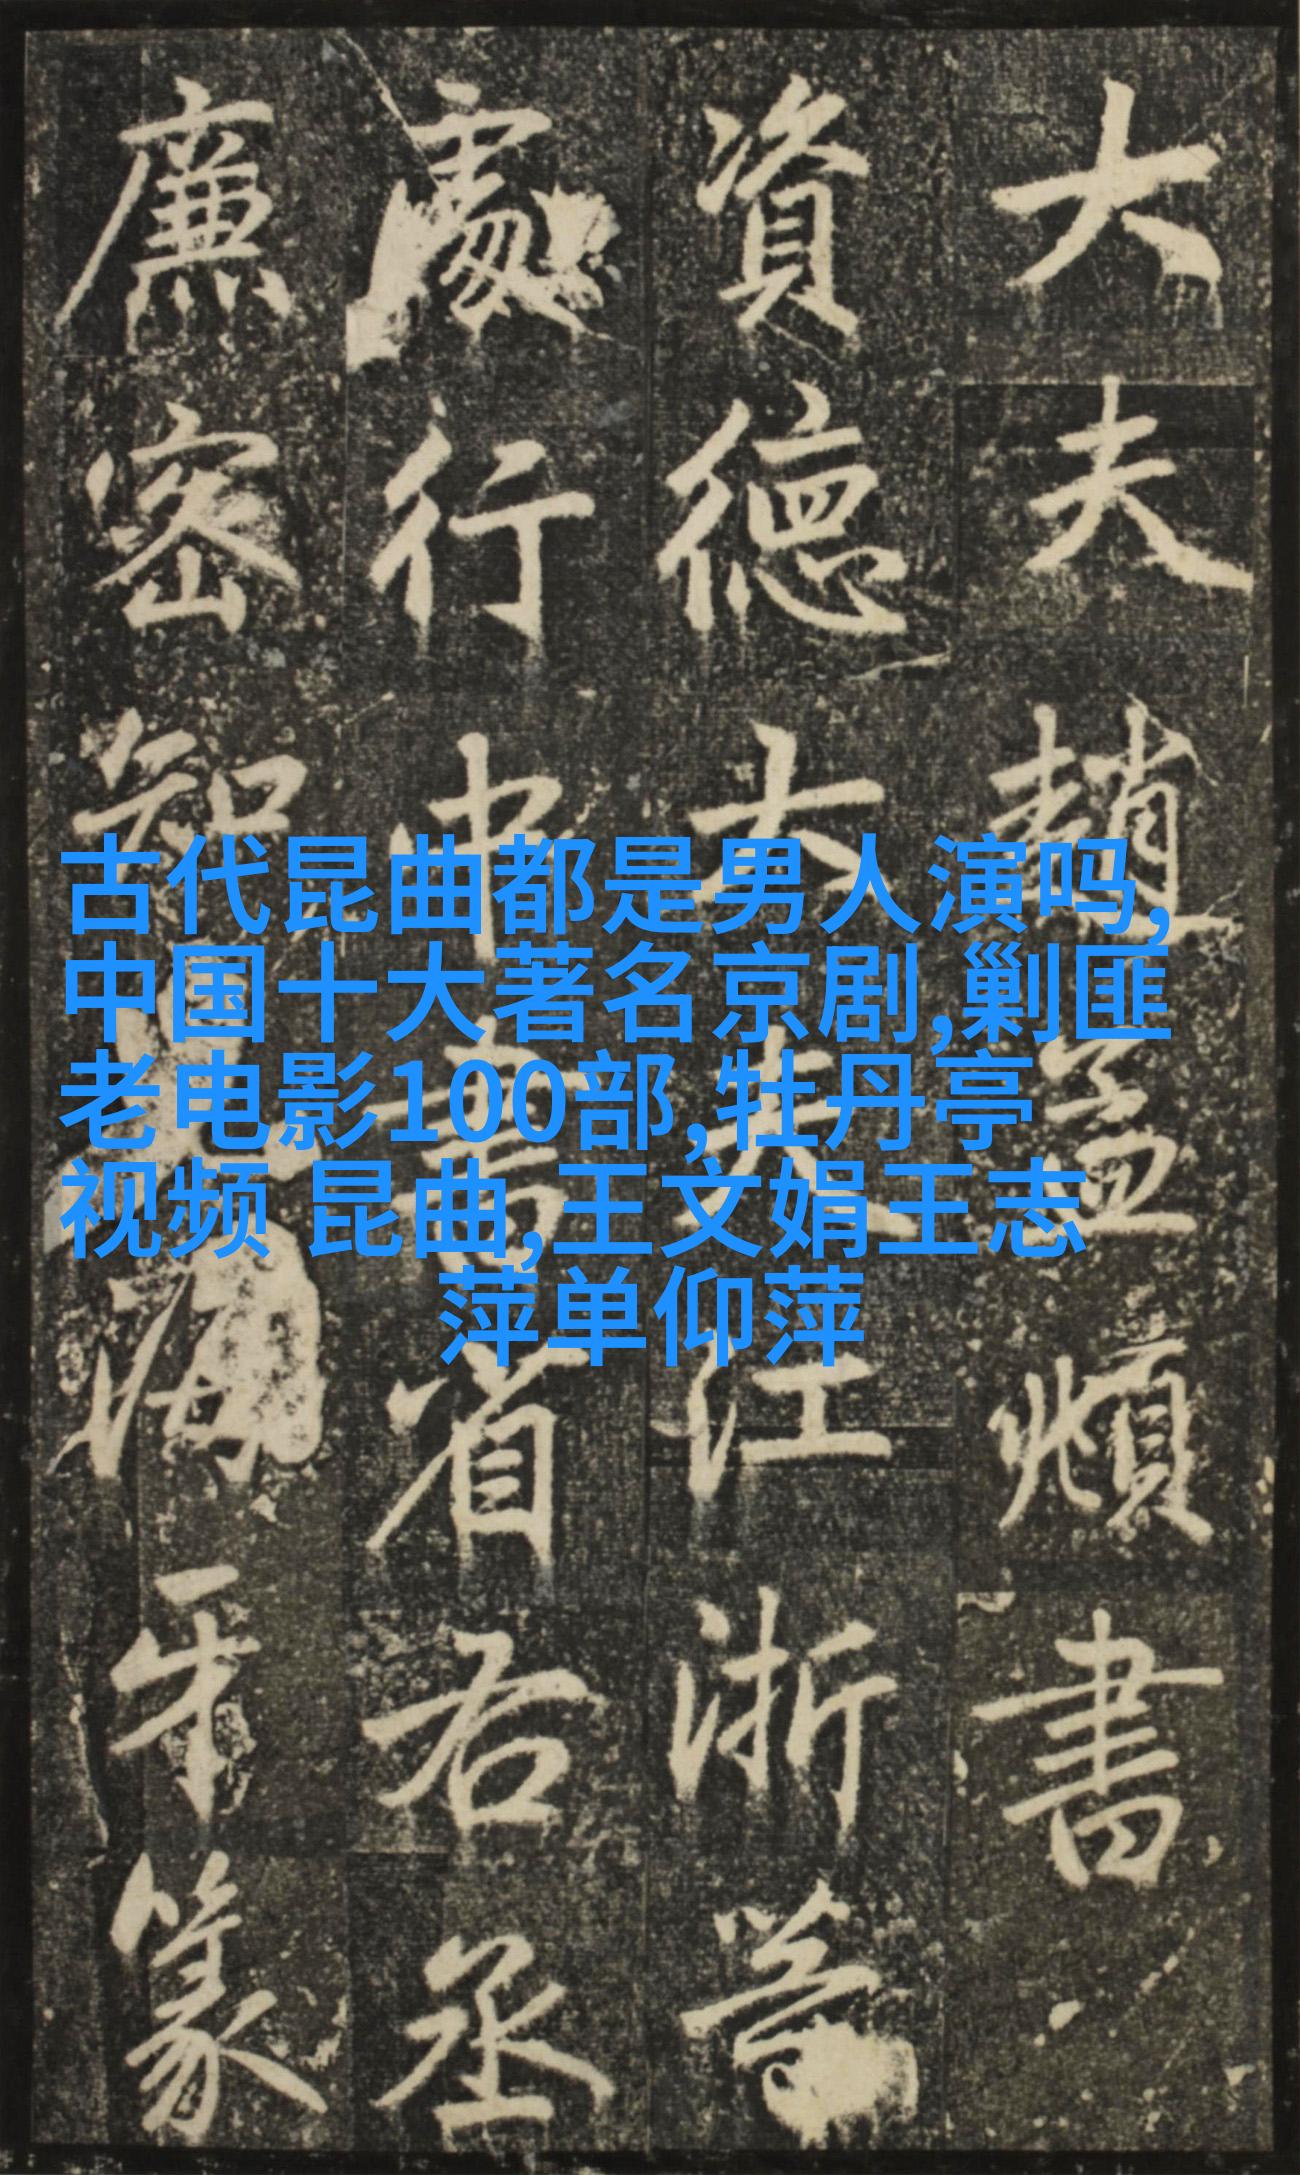 古代昆曲都是男人演吗,
中国十大著名京剧,剿匪
老电影100部,牡丹亭
视频 昆曲,王文娟王志
萍单仰萍
大夫趙孟頫書
資德大夫江浙等
處行中書省右丞
廉密知海牙篆